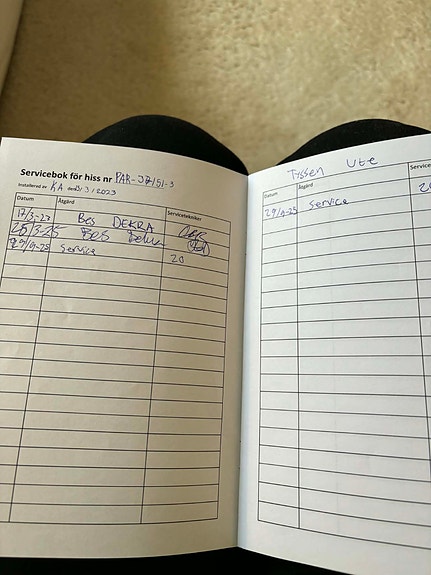 Servicebok för hiss nr PAR-J7151-3
Installerad av KA den 31/3/2023
Datum Åtgärd Servicetekniker
17/3-23 Bes DEKRA
25/3-25 BES Dekra
29/9-25 Service 20
Tyssen Ute
Datum Åtgärd Service
29/9-25 Service 20